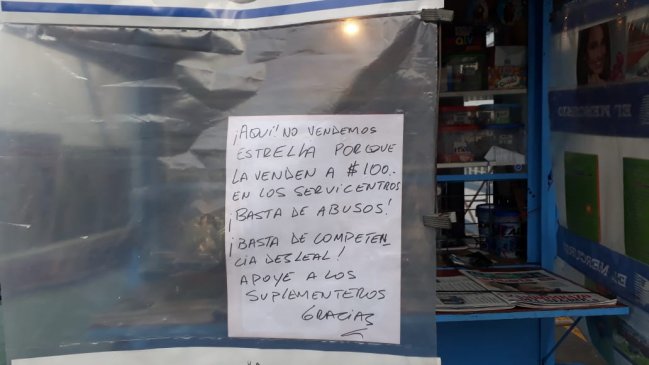 ¡AQUI! NO VENDEMOS
ESTRELLA PORQUE
LA VENDEN A $100.-
EN LOS SERVICENTROS
¡BASTA DE ABUSOS!
¡BASTA DE COMPETEN_
CIA DESLEAL!
APOYE A LOS
SUPLEMENTEROS
GRACIAS
EL MERCURIO
EL MERCURIO